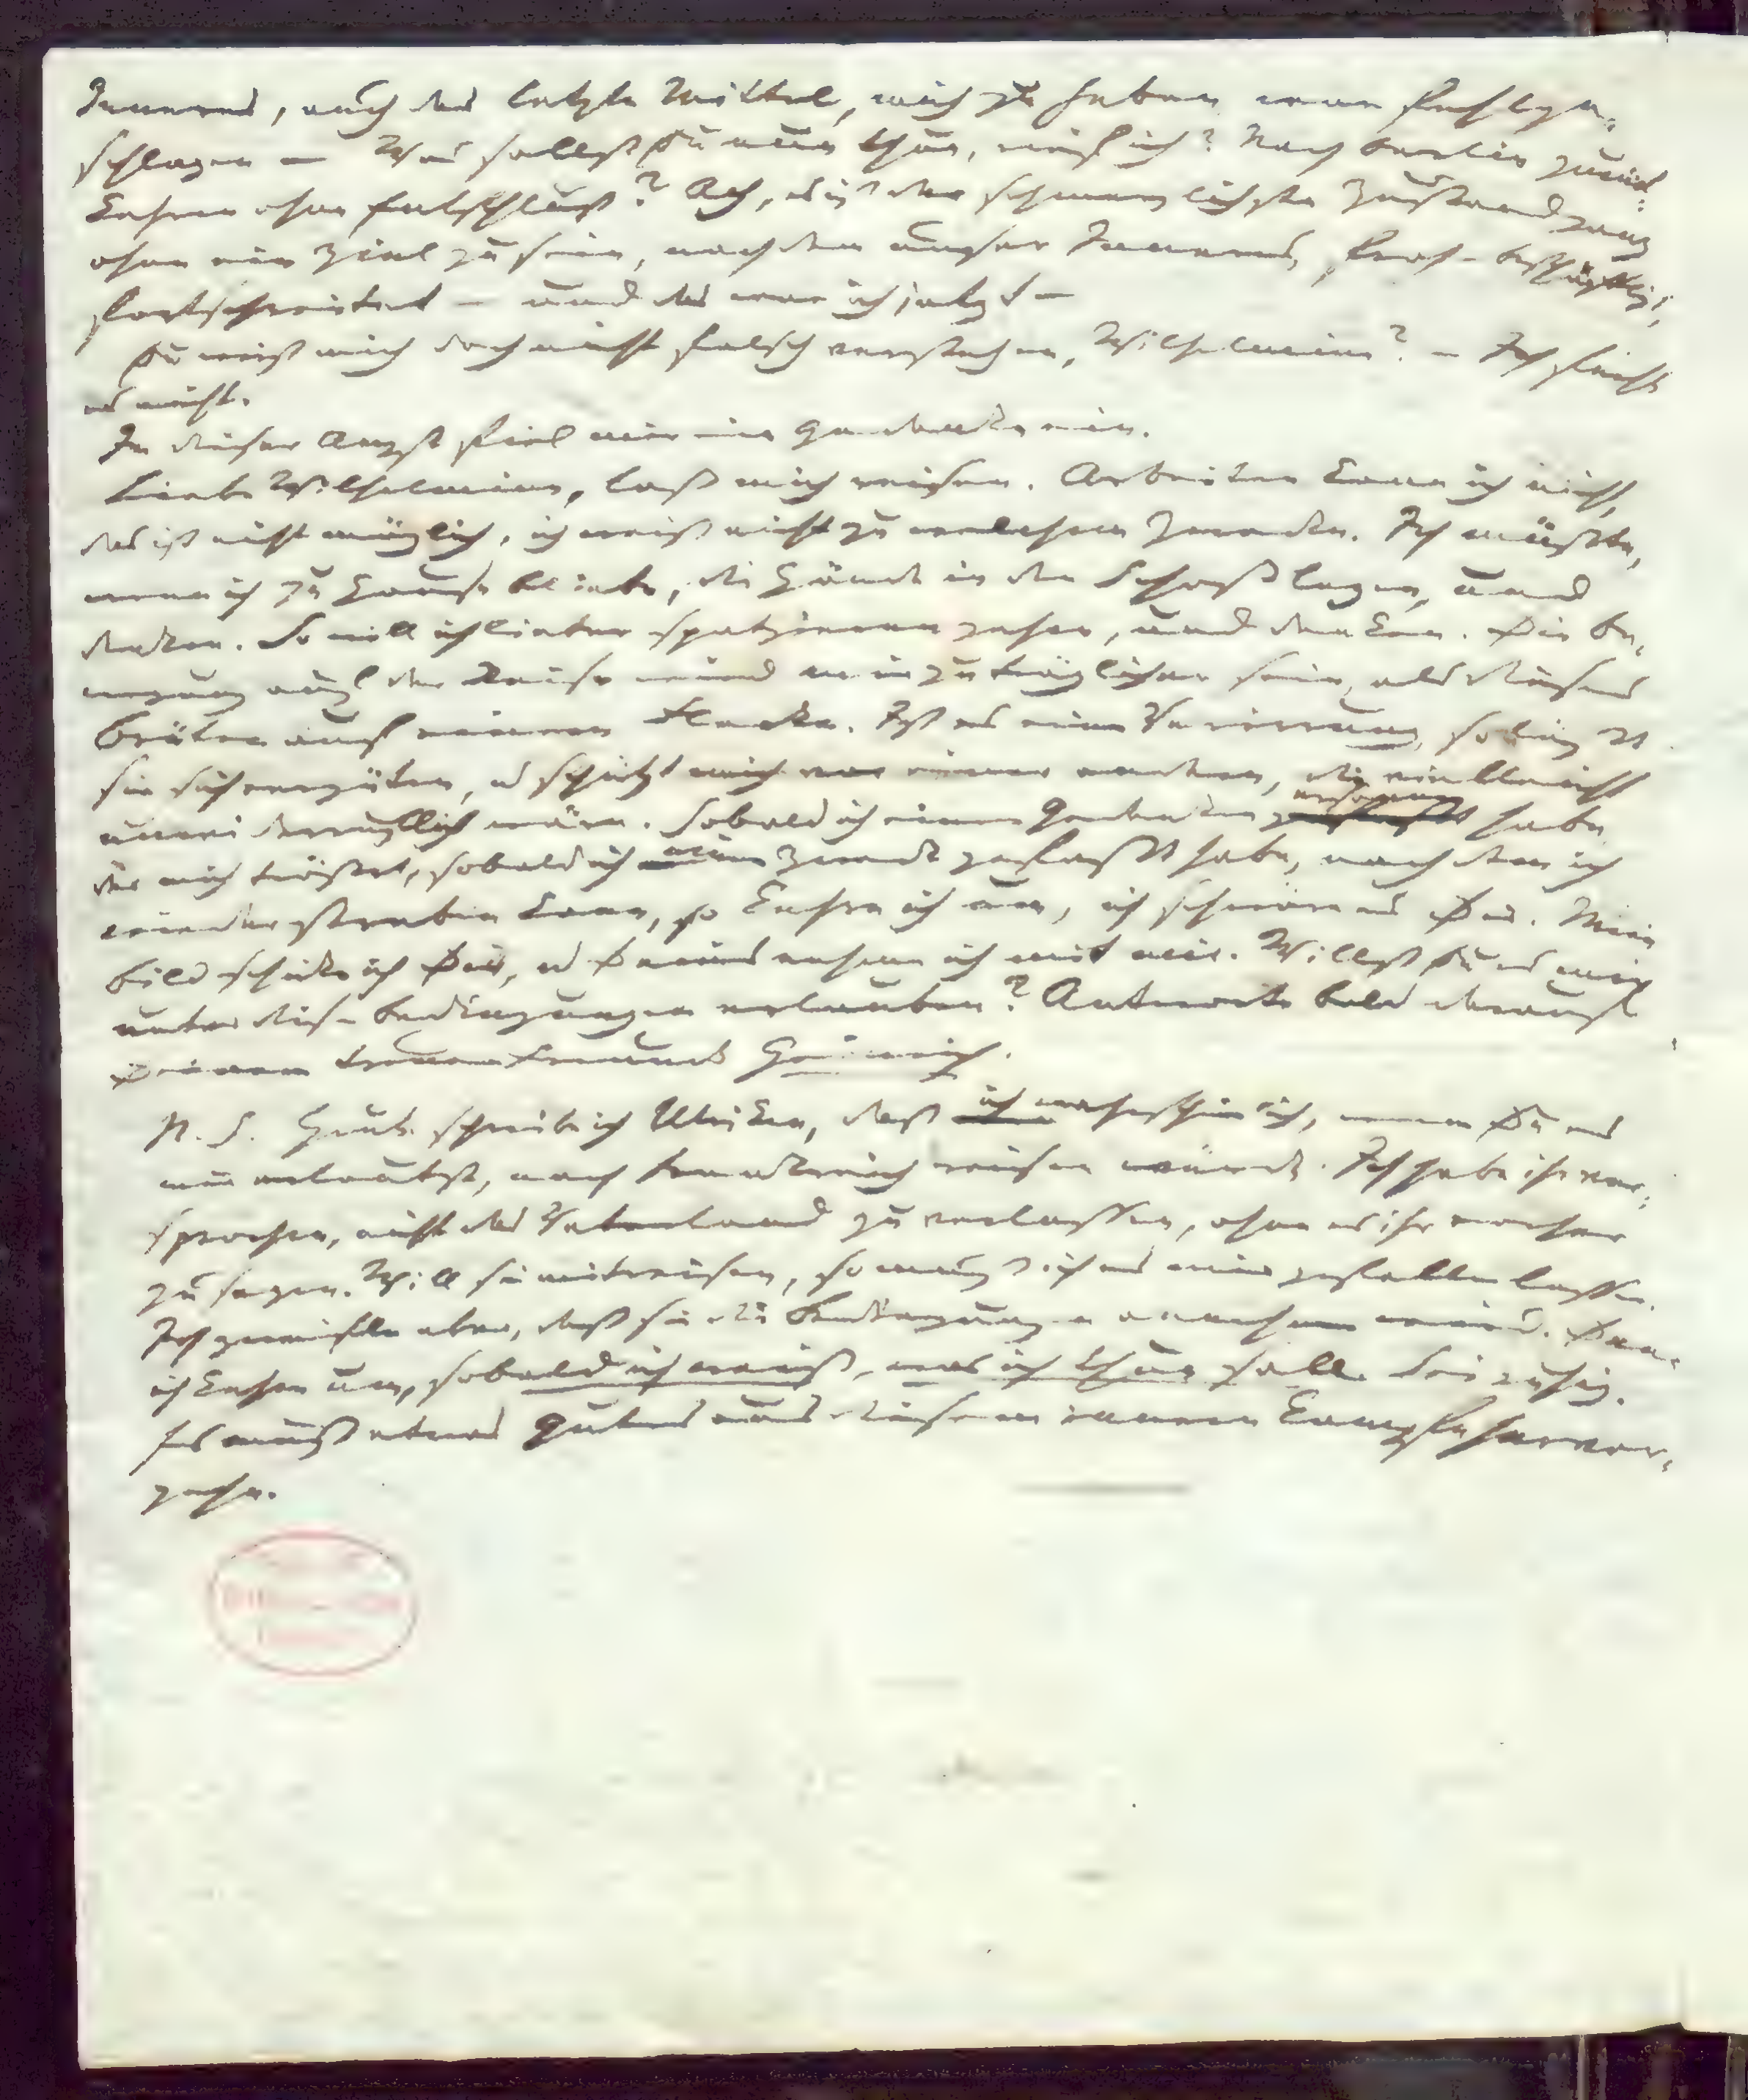 Inneres, auch das letzte Mittel, mich zu heben war fehlge-
schlagen — Was sollst Du nun thun, rief ich? Nach Berlin zurück-
kehren ohne Entschluß? Ach, es ist der schmerzlichste Zustand ganz
ohne ein Ziel zu sein, nach dem unser Inneres, froh-beschäftigt,
fortschreitet — und das war ich jetzt —
Du wirst mich doch nicht falsch verstehen, Wilhelmine? — Ich fürchte
es nicht.
In dieser Angst fiel mir ein Gedanke ein.
Liebe Wilhelmine, laß mich reisen. Arbeiten kann ich nicht,
das ist nicht möglich, ich weiß nicht zu welchem Zwecke. Ich müßte,
wenn ich zu Hause bliebe, die Hände in den Schooß legen, und
denken. So will ich lieber spatzieren gehen, und denken. Die Be-
wegung auf der Reise wird mir zuträglicher sein, als dieses
Brüten auf einem Flecke. Ist es eine Verirrung, so läßt
sie sich vergüten, und schützt mich vor einer andern, die vielleicht
unwiderruflich wäre. Sobald ich einen Gedanken ersonnen habe,
der mich tröstet, sobald ich einen Zweck gefaßt habe, nach dem ich
wieder streben kann, so kehre ich um, ich schwöre es Dir. Mein
Bild schicke ich Dir, und Deines nehme ich mit mir. Willst Du es mir
unter diesen Bedingungen erlauben? Antworte bald darauf
Deinem treuen Freunde Heinrich.
N. S. Heute schreibe ich Ulriken, daß ich wahrscheinlich, wenn Du es
mir erlaubst, nach Frankreich reisen würde. Ich habe ihr ver-
sprochen, nicht das Vaterland zu verlassen, ohne es ihr vorher
zu sagen. Will sie mitreisen, so muß ich es mir gefallen lassen.
Ich zweifle aber, daß sie die Bedingungen annehmen wird. Denn
ich kehre um, sobald ich weiß, was ich thun soll. Sei ruhig.
Es muß etwas Gutes aus diesem innern Kampfe hervor-
gehn.